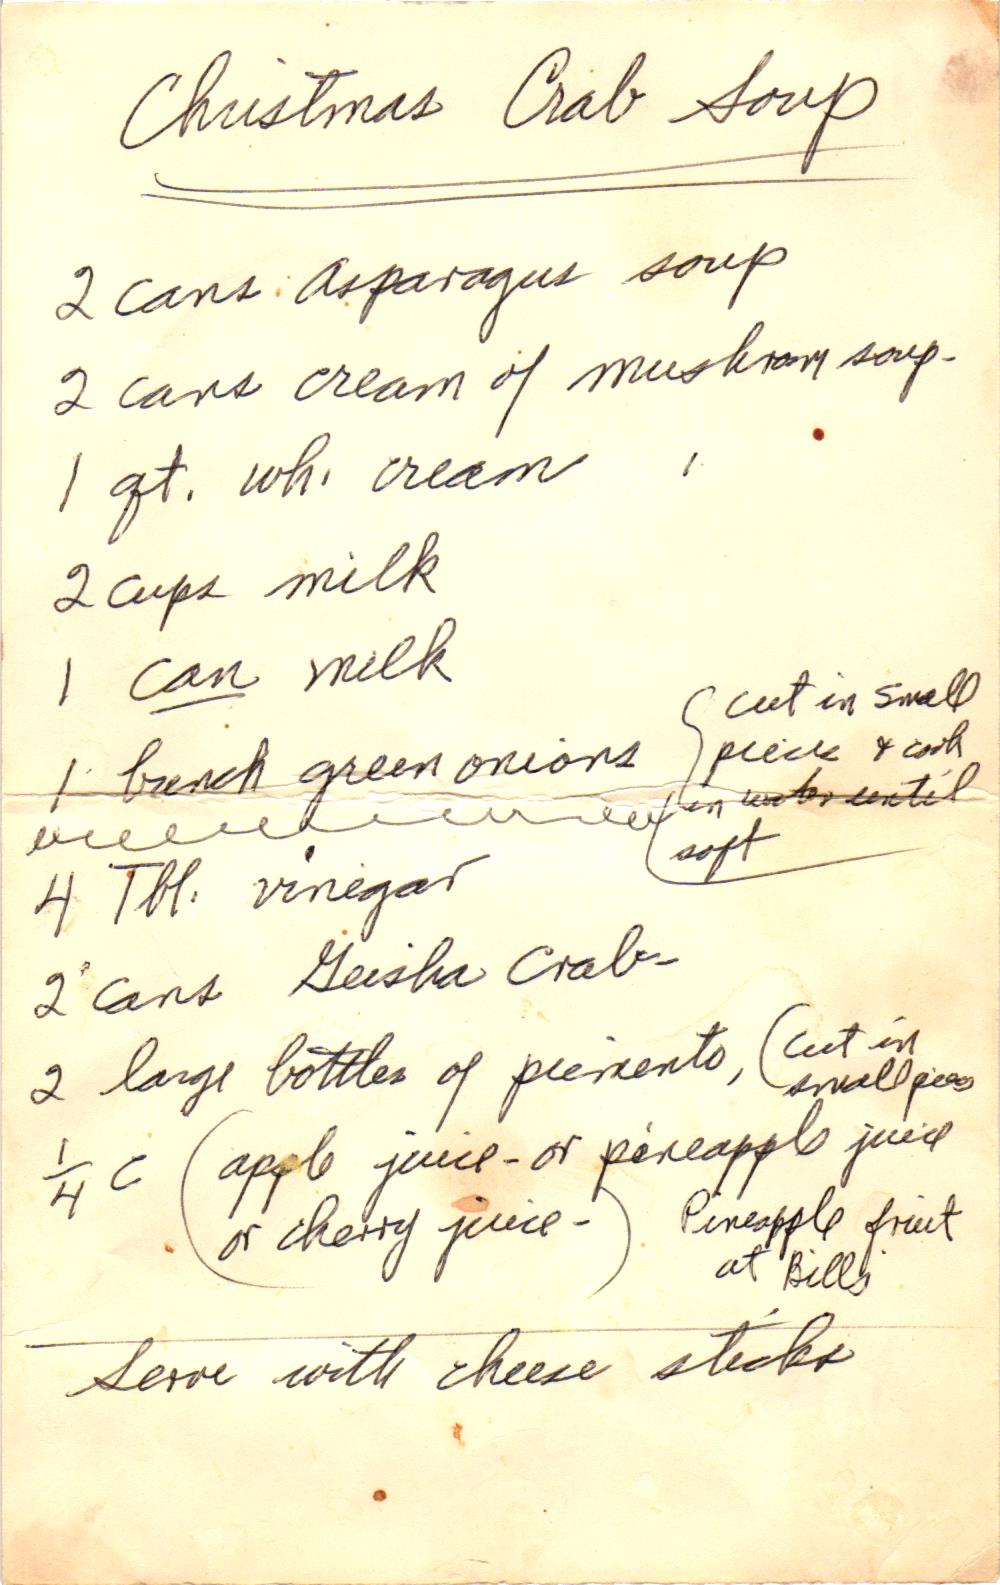 Christmas Crab Soup
2 cans Asparagus soup
2 cans cream of mushroom soup-
1 qt. wh. cream
2 cups milk
1 can milk
1 bunch green onions
cut in small
pieces & cook
in water until
soft
4 Tbl. vinegar
2 cans Geisha Crab-
2 large bottles of pimento, (cut in
small pces
1/4 c (apple juice - or pineapple juice
or cherry juice - )
Pineapple fruit
at Bills
Serve with cheese sticks